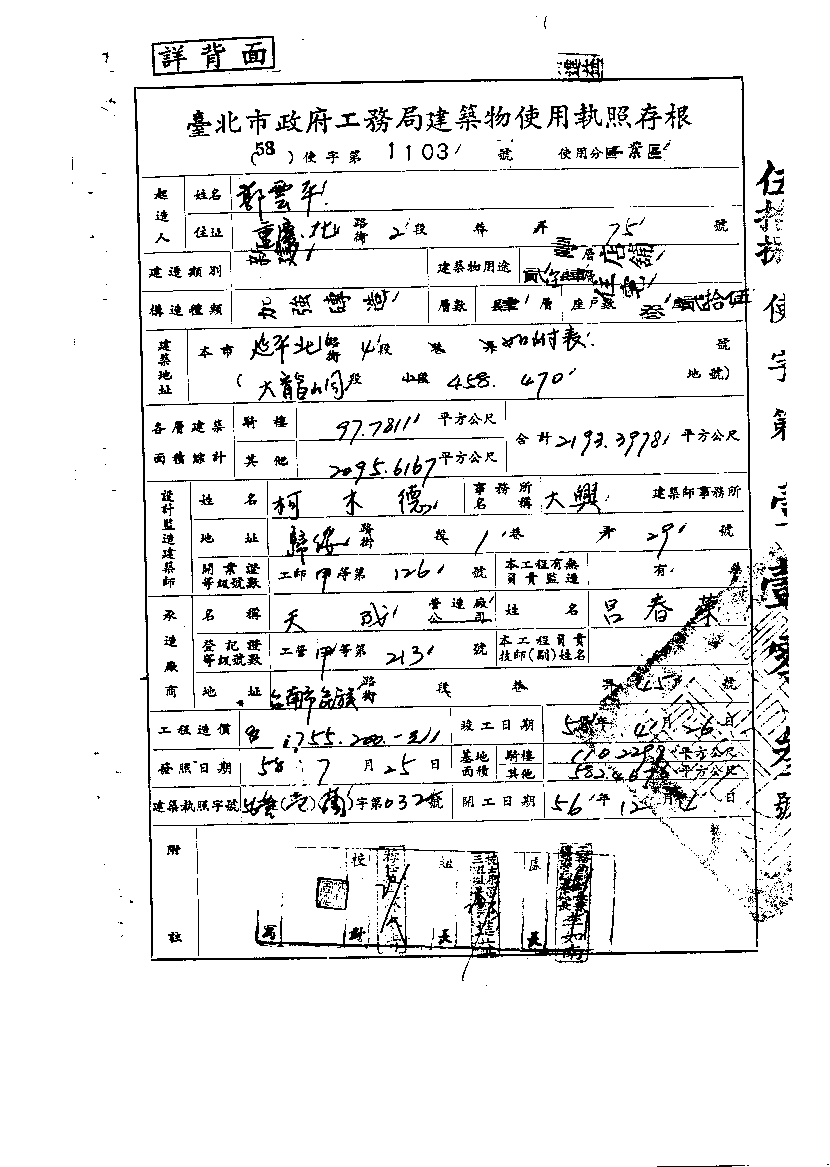 詳背面
臺北市政府工務局建築物使用執照存根
(58)使字第1103號 使用分區 業區
起造人 姓名 鄭雲平
住址 重慶北路街2段 巷 弄 75號
建造類別 建築物用途 店舖 住宅
構造種類 加強磚造 層數 肆層 座戶數 貳拾伍
建築地址 本市延平北路街4段 巷 弄 如附表 號
(大龍峒段 小段 458. 470 地號)
各層建築面積綜計 騎樓 97.7811平方公尺 合計2193.3978平方公尺
其他 2095.6167平方公尺
設計監造建築師 姓名 柯木德 事務所名稱 大興 建築師事務所
地址 歸綏路街 段 1巷 弄 29號
開業證等級號數 工師甲等第126號 本工程有無負責監造 有
承造廠商 名稱 天成 營造廠公司 姓名 呂春葉
登記證等級號數 工營甲等第213號 本工程負責技師(副)姓名
地址 台南市民族路街 段 巷 弄 45號
工程造價 1,755,200 竣工日期 58年4月26日
發照日期 58.7月25日 基地面積 騎樓 平方公尺
其他 平方公尺
建築執照字號 字第0325號 開工日期 56年12月 日
附註
寫 校對 組長 處長
伍拾捌使字第壹壹零參號